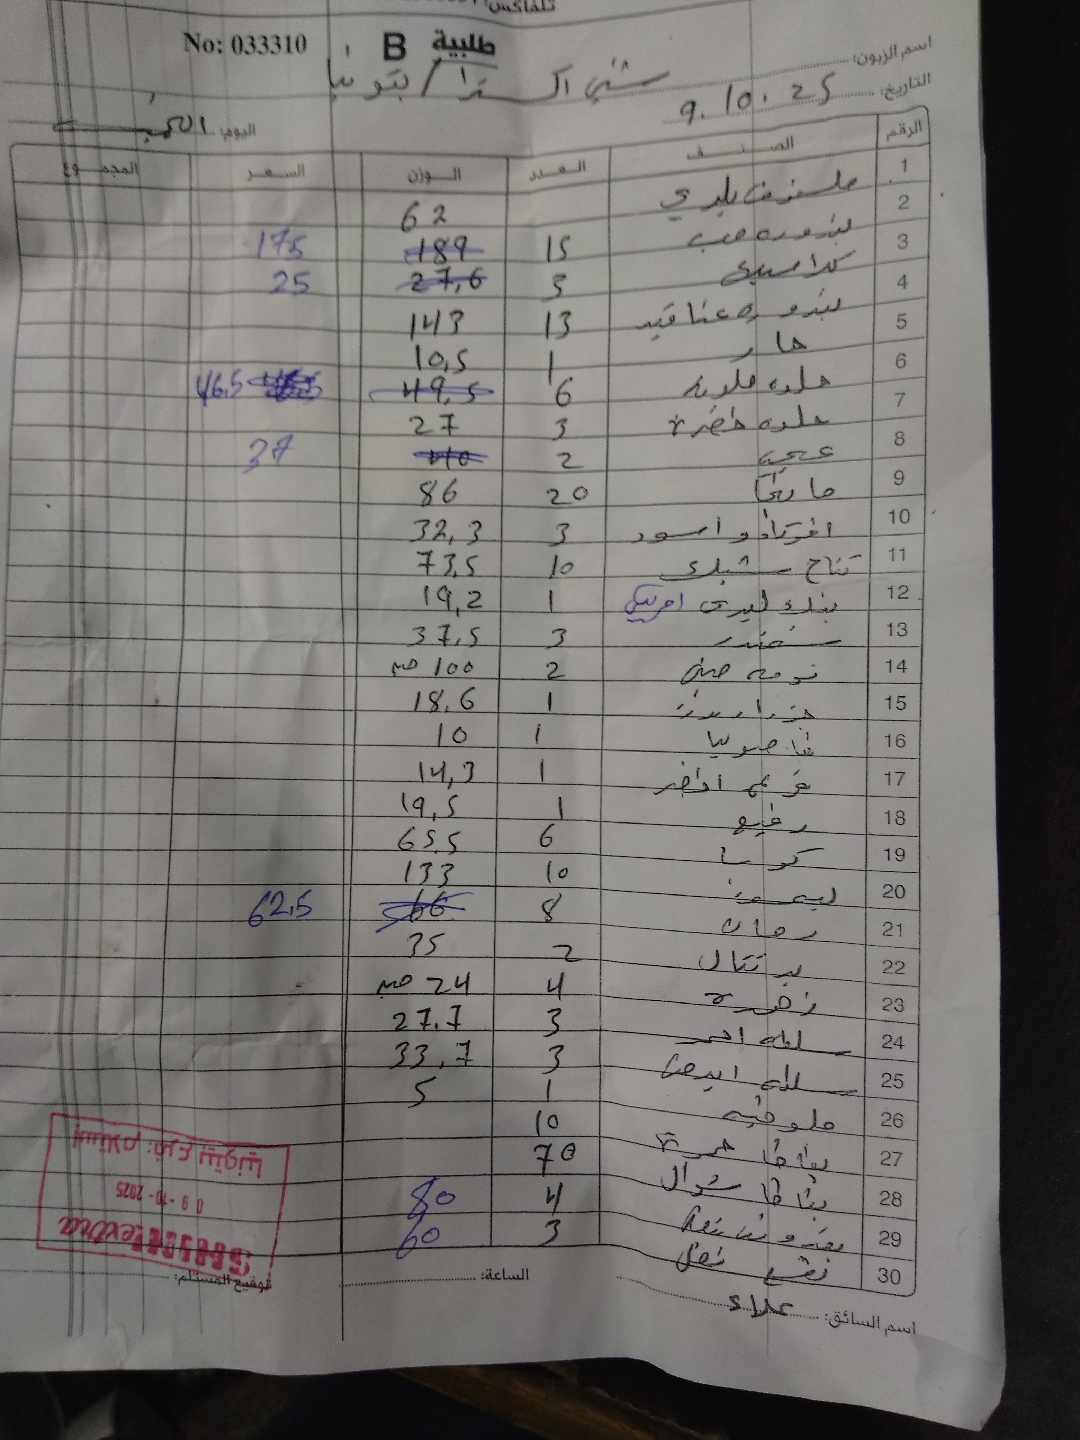 تلفاكس:
No: 033310 طلبية B
اسم الزبون: شني اكسترا / بتونيا
التاريخ: 9.10.25
اليوم: الخميس
الرقم الصنف العدد الوزن السعر المجموع
1 ملفوف بلدي 62
2 بندوره حب 15 189 175
3 كلاسيك 3 27,6 25
4 بندوره عناقيد 13 143
5 حار 1 10,5
6 حلوه ملونه 6 49,5 46.5
7 حلوه خضرة 3 27
8 عجمي 2 40 37
9 20 86
10 افوكادو اسود 3 32,3
11 تفاح شبك 10 73,5
12 بنك ليدي امريكي 1 19,2
13 شمندر 3 37,5
14 ثومه صيني 2 100 حبه
15 1 18.6
16 فاصوليا 1 10
17 قرع اخضر 1 14,3
18 رفيع 1 19,5
19 كوسا 6 65.5
20 ليمون 10 133
21 رمان 8 66 62.5
22 برتقال 2 35
23 زهرة 4 24 حبه
24 سلطه احمر 3 27.7
25 سلطه ابيض 3 33.7
26 ملوخيه 1 5
27 بطاطا حمرة 10
28 بطاطا شوال 70
29 بقدونس نعنع 4 80
30 فجل 3 60
اسم السائق: علاء
الساعة:
توقيع المستلم:
استلام: فرع بيتونيا
09-10-2025
extra